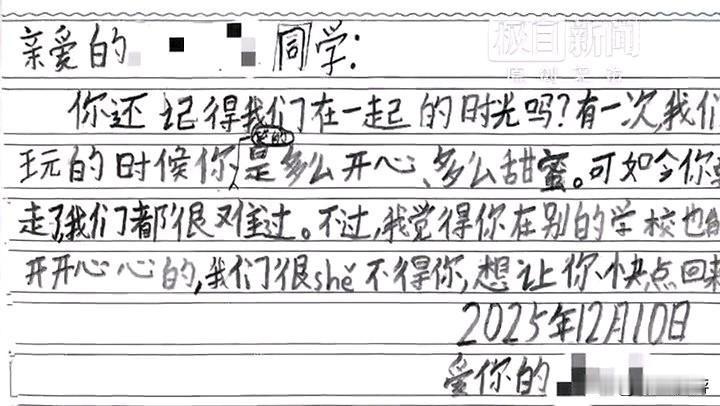 极目新闻
原创发布
亲爱的 同学:
你还记得我们在一起的时光吗?有一次,我们
玩的时候你笑的是多么开心、多么甜蜜。可如今你要
走了,我们都很难过。不过,我觉得你在别的学校也能
开开心心的,我们很shě不得你,想让你快点回来
2025年12月10日
爱你的